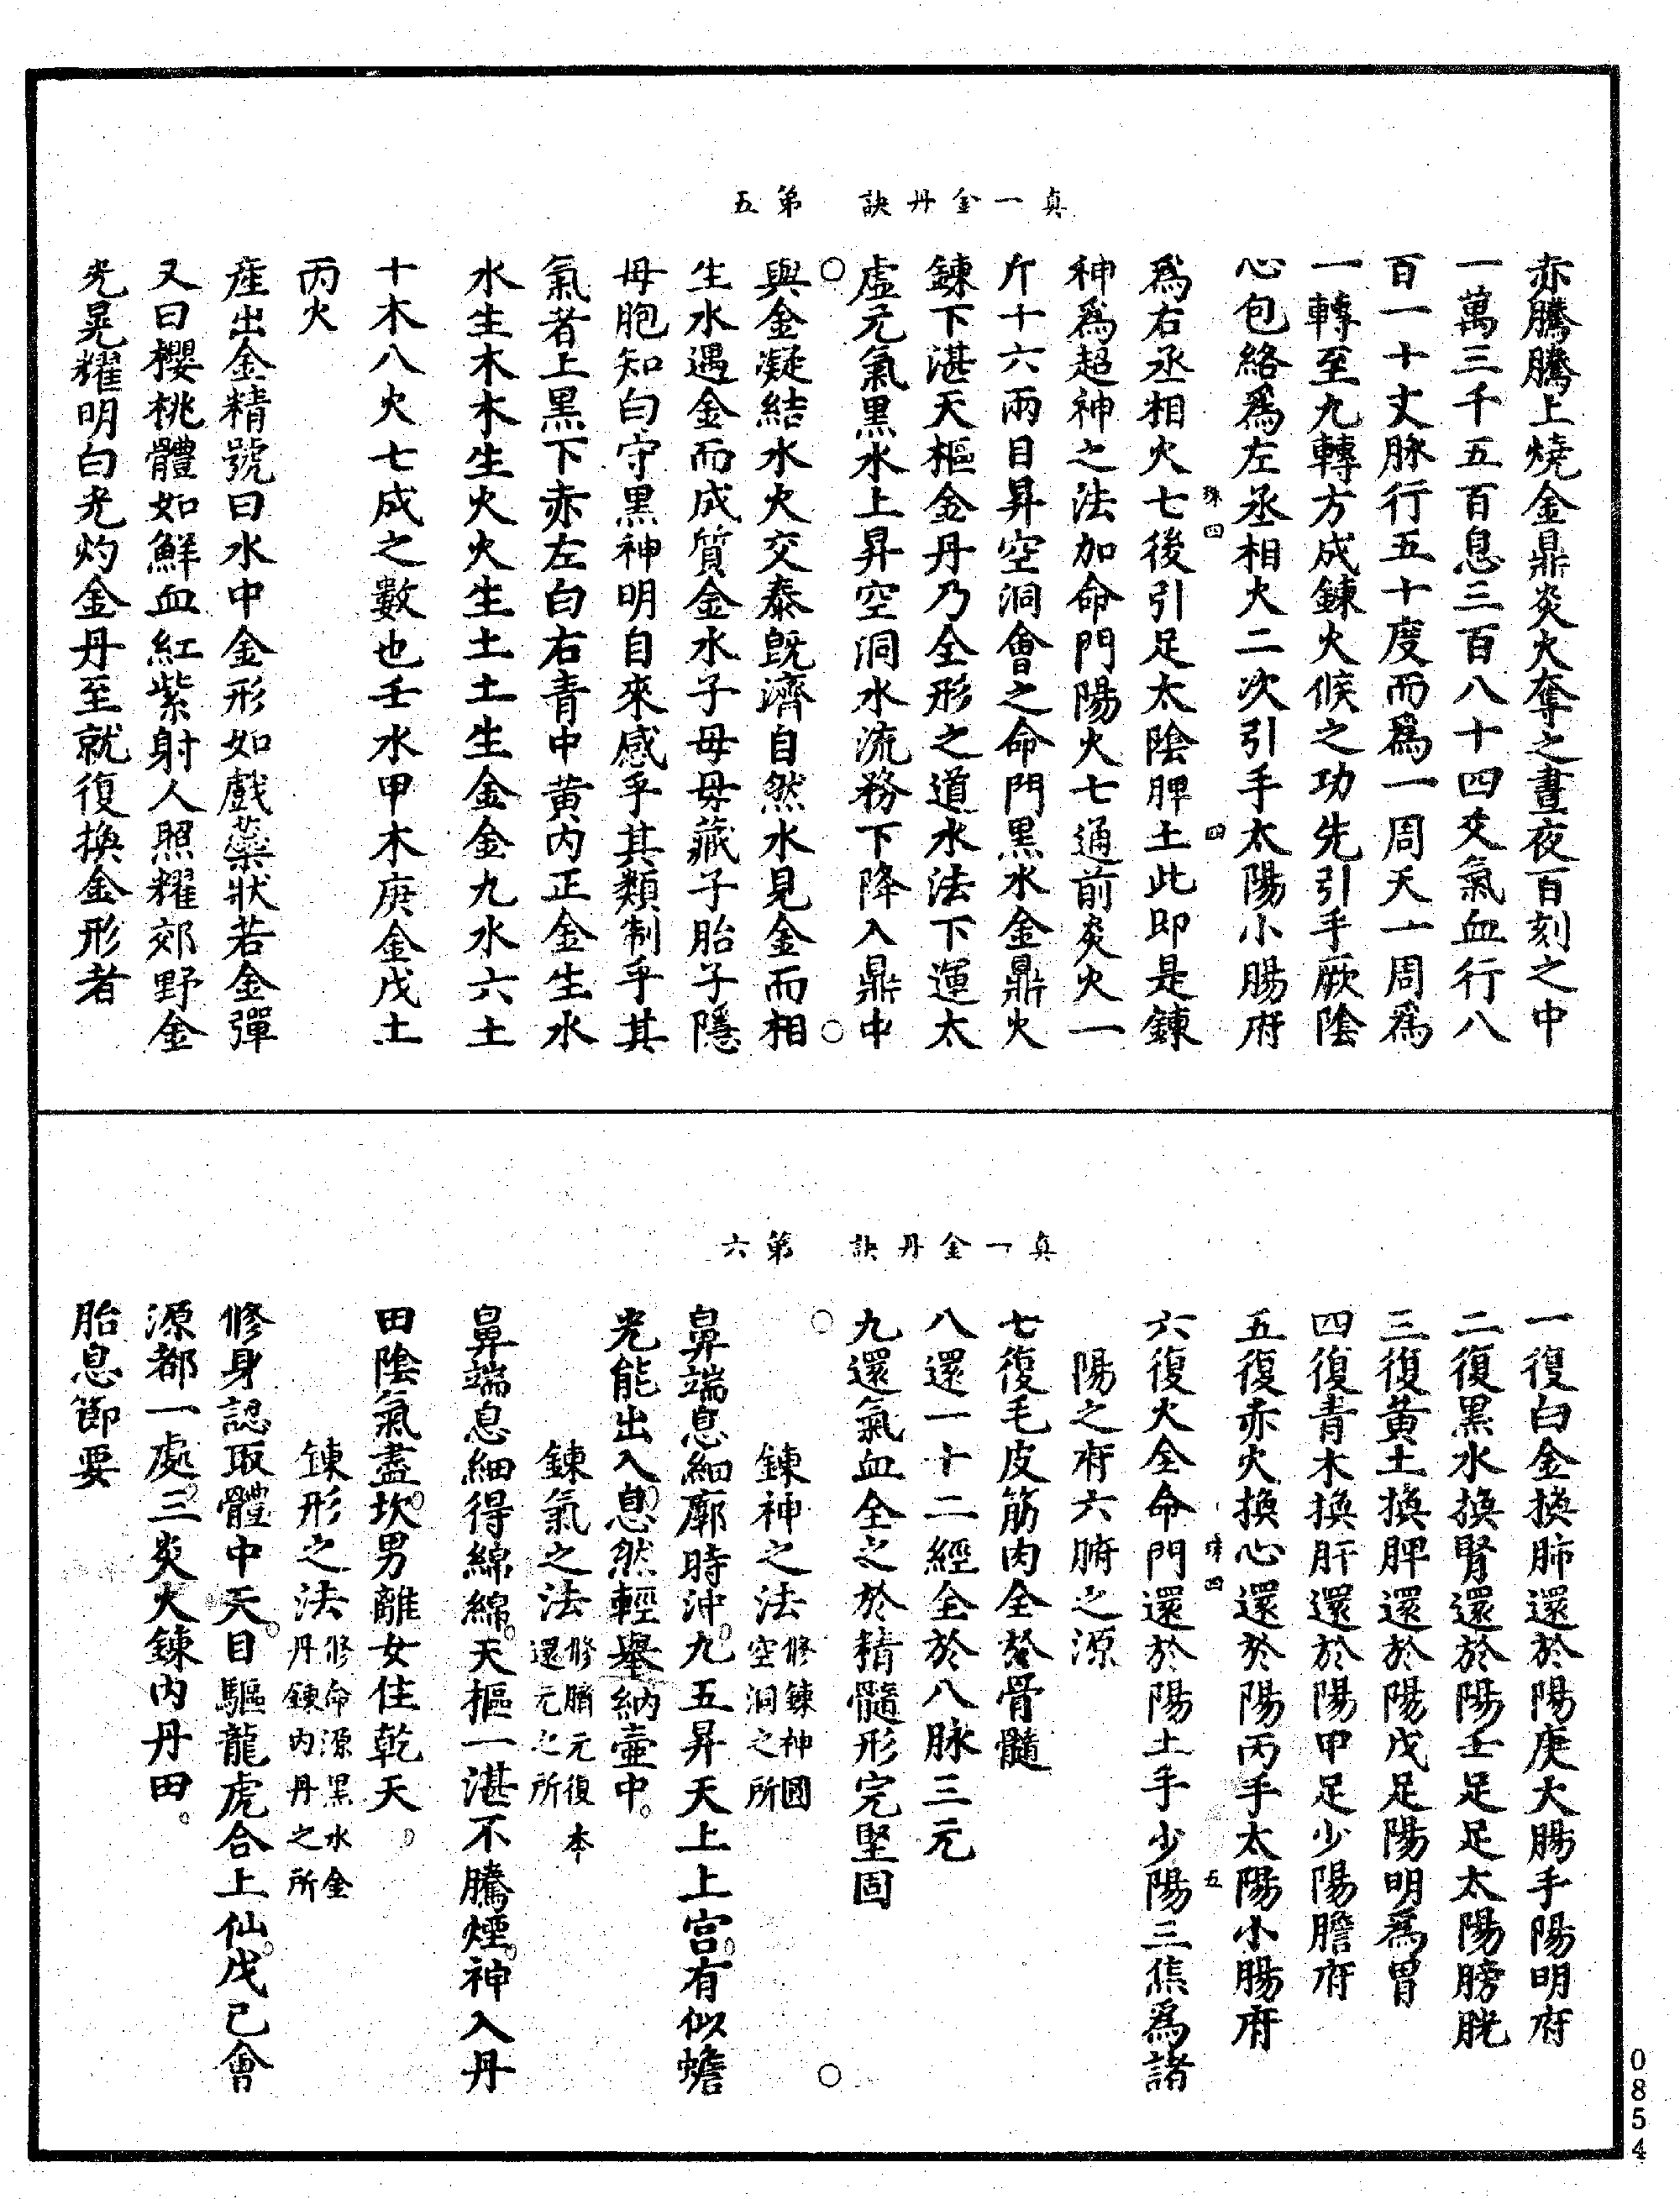 真一金丹訣　第五
赤騰騰上燒金鼎炎火奪之晝夜百刻之中
一萬三千五百息三百八十四爻氣血行八
百一十丈脉行五十度而爲一周天一周爲
一轉至九轉方成鍊火候之功先引手厥陰
心包絡爲左丞相火二次引手太陽小腸府
珠四　四
爲右丞相火七後引足太陰脾土此即是鍊
神爲超神之法加命門陽火七通前炎火一
斤十六兩目昇空洞會之命門黑水金鼎火
鍊下湛天樞金丹乃全形之道水法下運太
虛元氣黑水上昇空洞水流務下降入鼎中
與金凝結水火交泰旣濟自然水見金而相
生水遇金而成質金水子母母藏子胎子隱
母胞知白守黑神明自來感乎其類制乎其
氣者上黑下赤左白右青中黄内正金生水
水生木木生火火生土土生金金九水六土
十木八火七成之數也壬水甲木庚金戊土
丙火
産出金精號曰水中金形如戲藥狀若金彈
又曰櫻桃體如鮮血紅紫射人照耀郊野金
光晃耀明白光灼金丹至就復換金形者
真一金丹訣　第六
一復白金換肺還於陽庚大腸手陽明府
二復黑水換腎還於陽壬足太陽膀胱
三復黄土換脾還於陽戊足陽明爲胃
四復青木換肝還於陽甲足少陽膽府
五復赤火換心還於陽丙手太陽小腸府
珠四　五
六復火全命門還於陽土手少陽三焦爲諸
陽之府六腑之源
七復毛皮筋肉全於骨髓
八還一十二經全於八脉三元
九還氣血全之於精髓形完堅固
鍊神之法修鍊神圓空洞之所
鼻端息細廓時沖九五昇天上上宫有似蟾
光能出入息然輕舉納壷中
鍊氣之法修臍元復本還元之所
鼻端息細得綿綿天樞一湛不騰煙神入丹
田陰氣盡坎男離女住乾天
鍊形之法修命源黑水金丹鍊内丹之所
修身認取體中天目驅龍虎合上仙戊己會
源都一處三炎火鍊内丹田
胎息節要
0854